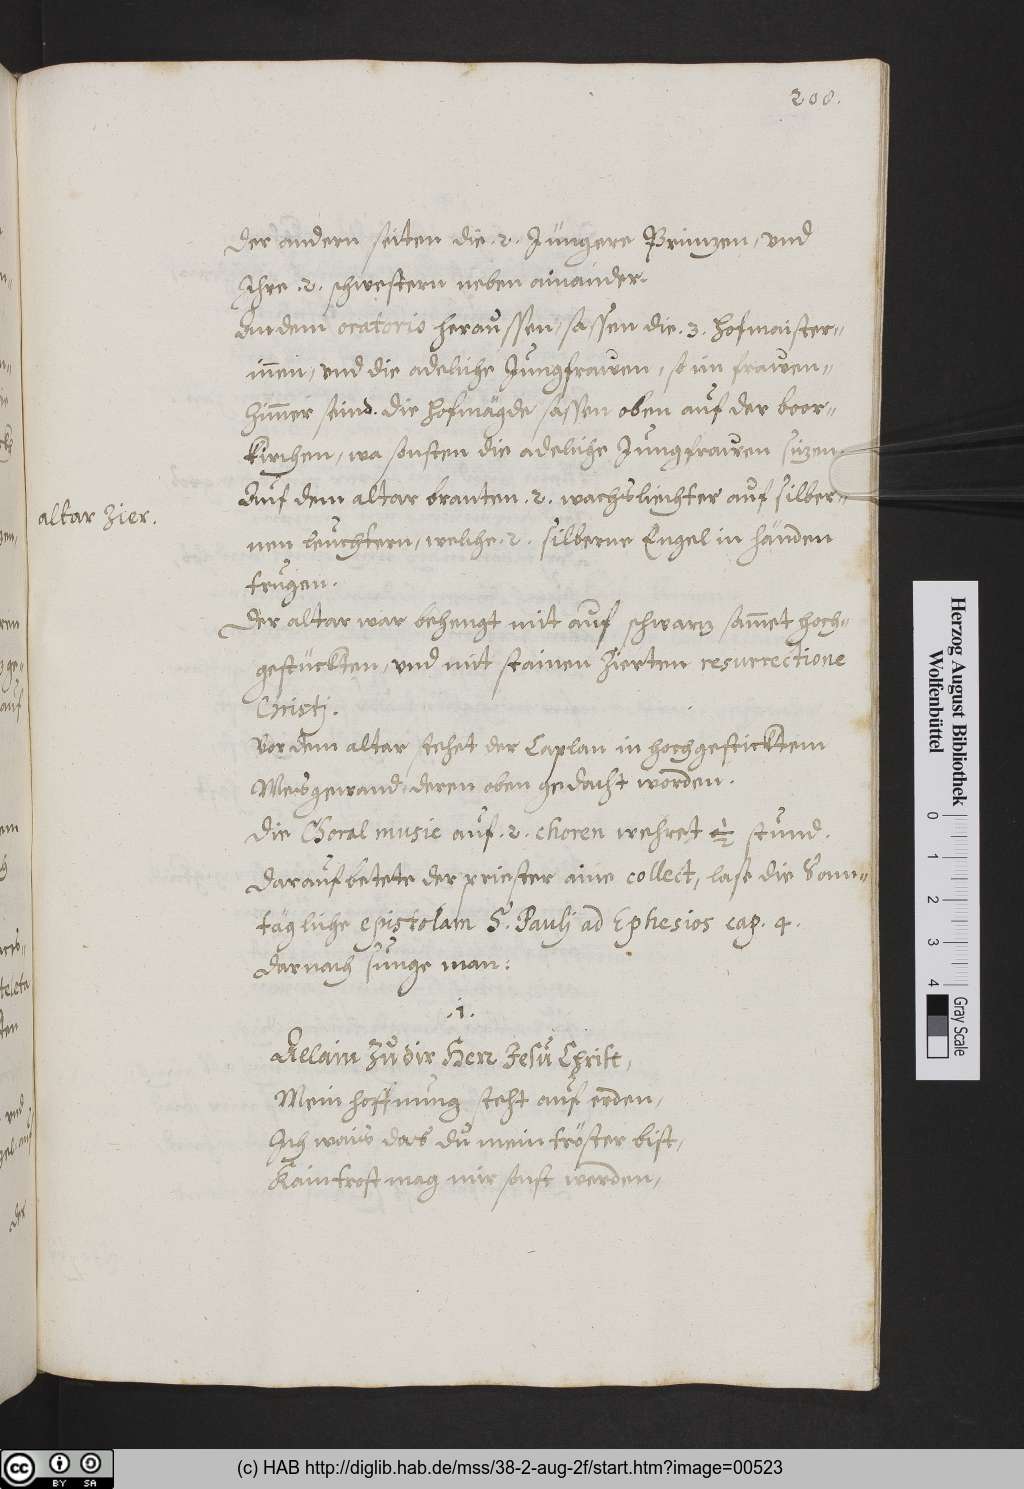 208.
der andern seiten die .2. Jüngere Prinzen, und
Ihre .2. schwestern neben ainander.
An dem oratorio heraussen, sassen die .3. hofmaister=
innen, und die adeliche Jungfrawen, so im frawen=
zimmer seind. die hofmägde sassen oben auf der boor=
kirchen, wa sonsten die adeliche Jungfrawen sizen.
Auf dem altar branten .2. wachsliechter auf silber=
altar zier.
nen leuchtern, welche .2. silberne Engel in händen
trugen.
Der altar war behengt mit auf schwarz sammet hoch=
gestückten, und mit stainen zierten resurrectione
Christi.
Vor dem altar stehet der Caplan in hochgesticktem
Mesgewand, deren oben gedacht worden.
Die Choral music auf .2. choren wehret ½ stund.
Darauf betete der priester aine collect, lase die Sonn=
tägliche epistolam S. Pauli ad Ephesios cap. 4.
Darnach sunge man:
.1.
Allain zu dir Herr Jesu Christ,
Mein hoffnung steht auf erden,
Ich wais das du mein tröster bist,
Kain trost mag mir sonst werden,
Herzog August Bibliothek
Wolfenbüttel
0 1 2 3 4
Gray Scale
cc BY SA
(c) HAB http://diglib.hab.de/mss/38-2-aug-2f/start.htm?image=00523